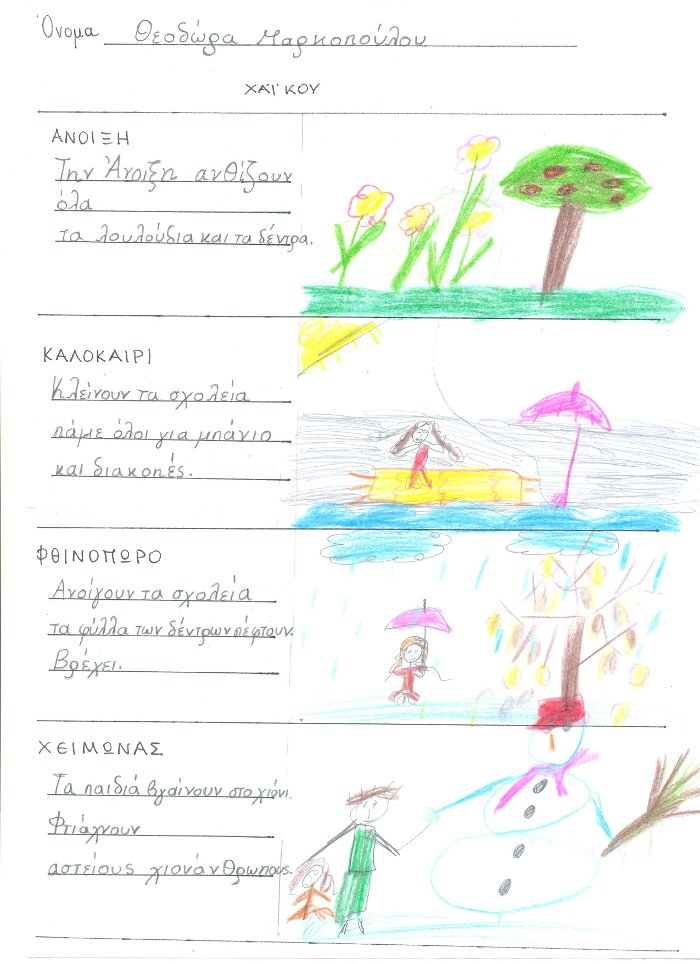 Όνομα Θεοδώρα Μαρκοπούλου
ΧΑΪΚΟΥ
ΑΝΟΙΞΗ
Την Άνοιξη ανθίζουν
όλα
τα λουλούδια και τα δέντρα.
ΚΑΛΟΚΑΙΡΙ
Κλείνουν τα σχολεία
πάμε όλοι για μπάνιο
και διακοπές.
ΦΘΙΝΟΠΩΡΟ
Ανοίγουν τα σχολεία
τα φύλλα των δέντρων πέφτουν.
Βρέχει.
ΧΕΙΜΩΝΑΣ
Τα παιδιά βγαίνουν στο χιόνι.
Φτιάχνουν
αστείους χιονάνθρωπους.